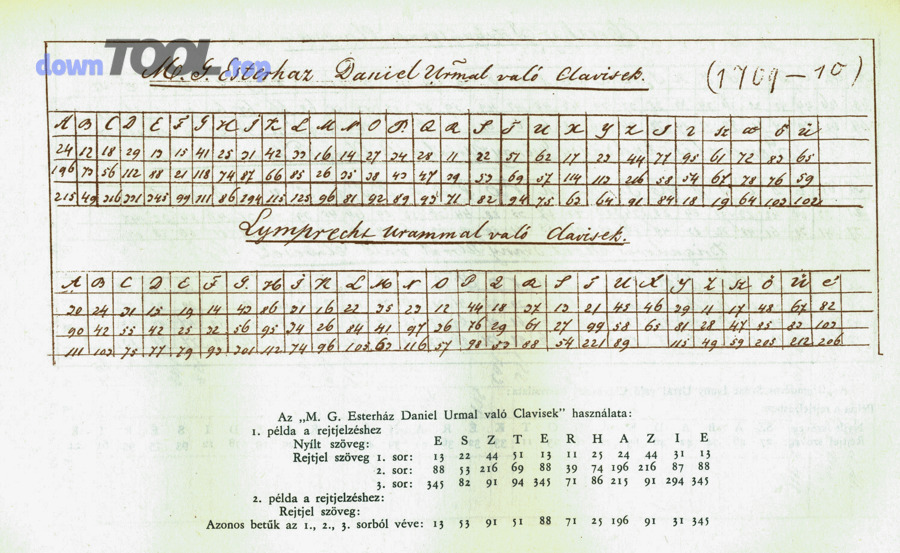 downTOOLrep
M. G. Esterhaz Daniel Urmal való Clavisek. (1709-10)
A B C D E F G H I K L M N O P Q R S T U X Y Z
24 12 18 29 13 15 41 25 31 42 33 16 14 27 34 28 11 22 51 62 17 23 44 77 95 61 72 83 65
196 73 56 112 88 21 118 74 87 66 85 26 35 38 43 47 39 53 69 57 114 113 216 58 54 67 78 76 59
215 49 316 331 345 99 111 86 294 115 125 96 81 92 89 93 71 82 94 75 63 64 91 84 18 19 64 103 102
Lymprecht Urammal való Clavisek.
A B C D E F G H I K L M N O P Q R S T U X Y Z
30 24 31 15 19 14 43 86 31 16 22 35 23 12 44 18 37 13 21 45 46 39 11 17 48 67 82
90 42 55 42 25 32 56 95 34 26 84 41 97 36 76 29 61 27 99 58 65 81 28 47 85 83 103
111 102 75 77 79 93 201 112 74 96 105 63 116 57 98 53 88 54 221 89 115 49 59 205 212 206
Az „M. G. Esterház Daniel Urmal való Clavisek" használata:
1. példa a rejtjelzéshez
Nyílt szöveg: E S Z T E R H A Z I E
Rejtjel szöveg 1. sor: 13 22 44 51 13 11 25 24 44 31 13
2. sor: 88 53 216 69 88 39 74 196 216 87 88
3. sor: 345 82 91 94 345 71 86 215 91 294 345
2. példa a rejtjelzéshez:
Rejtjel szöveg:
Azonos betűk az 1., 2., 3. sorból véve: 13 53 91 51 88 71 25 196 91 31 345